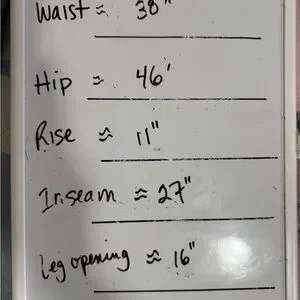 Waist ≈ 38"
Hip ≈ 46'
Rise ≈ 11"
Inseam ≈ 27"
Leg opening ≈ 16"